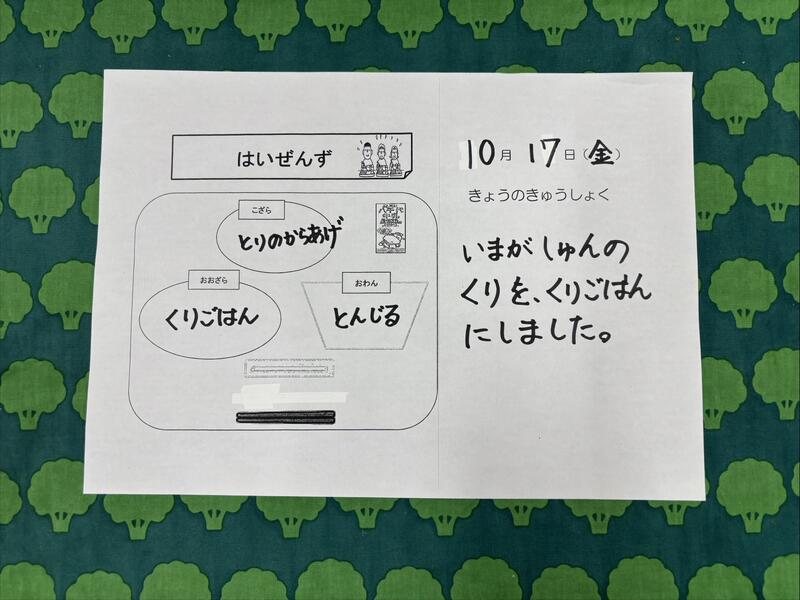 はいぜんず
こざら
とりのからあげ
おおざら
くりごはん
おわん
とんじる
10月 17日(金)
きょうのきゅうしょく
いまが しゅんの
くりを、くりごはん
にしました。